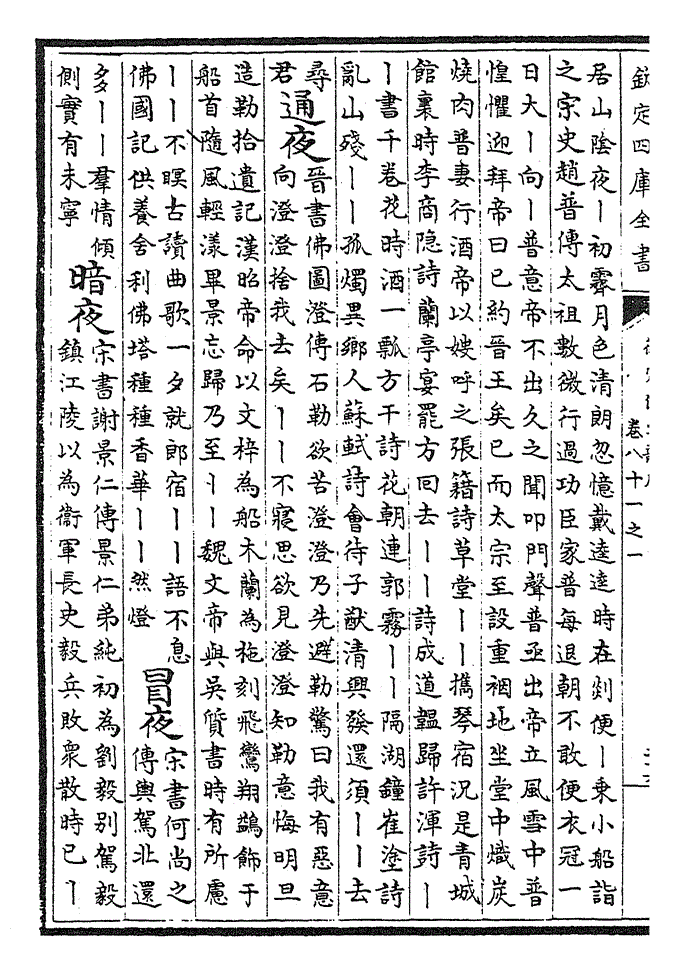 欽定四庫全書
卷八十一之一
居山陰夜丨初霽月色清朗忽憶戴逵逵時在剡便丨乘小船詣
之宋史趙普傳太祖數微行過功臣家普每退朝不敢便衣冠一
日大丨向丨普意帝不出久之聞叩門聲普亟出帝立風雪中普
惶懼迎拜帝曰已約晉王矣已而太宗至設重裀地坐堂中熾炭
燒肉普妻行酒帝以嫂呼之張籍詩草堂丨丨攜琴宿況是青城
館裏時李商隱詩蘭亭宴罷方回去丨丨詩成道韞歸許渾詩丨
丨書千卷花時酒一瓢方干詩花朝連郭霧丨丨隔湖鐘崔塗詩
亂山殘丨丨孤燭異鄉人蘇軾詩會待子猷清興發還須丨丨去
尋
君
通夜
晉書佛圖澄傳石勒欲苦澄澄乃先避勒驚曰我有惡意
向澄澄捨我去矣丨丨不寢思欲見澄澄知勒意悔明旦
造勒拾遺記漢昭帝命以文梓為船木蘭為柂刻飛鸞翔鷁飾于
船首隨風輕漾畢景忘歸乃至丨丨魏文帝與吳質書時有所慮
丨丨不瞑古讀曲歌一夕就郎宿丨丨語不息
佛國記供養舍利佛塔種種香華丨丨然燈
冒夜
宋書何尚之
傳輿駕北還
多丨丨羣情傾
側實有未寧
暗夜
宋書謝景仁傳景仁弟純初為劉毅别駕毅
鎮江陵以為衞軍長史毅兵敗衆散時已丨